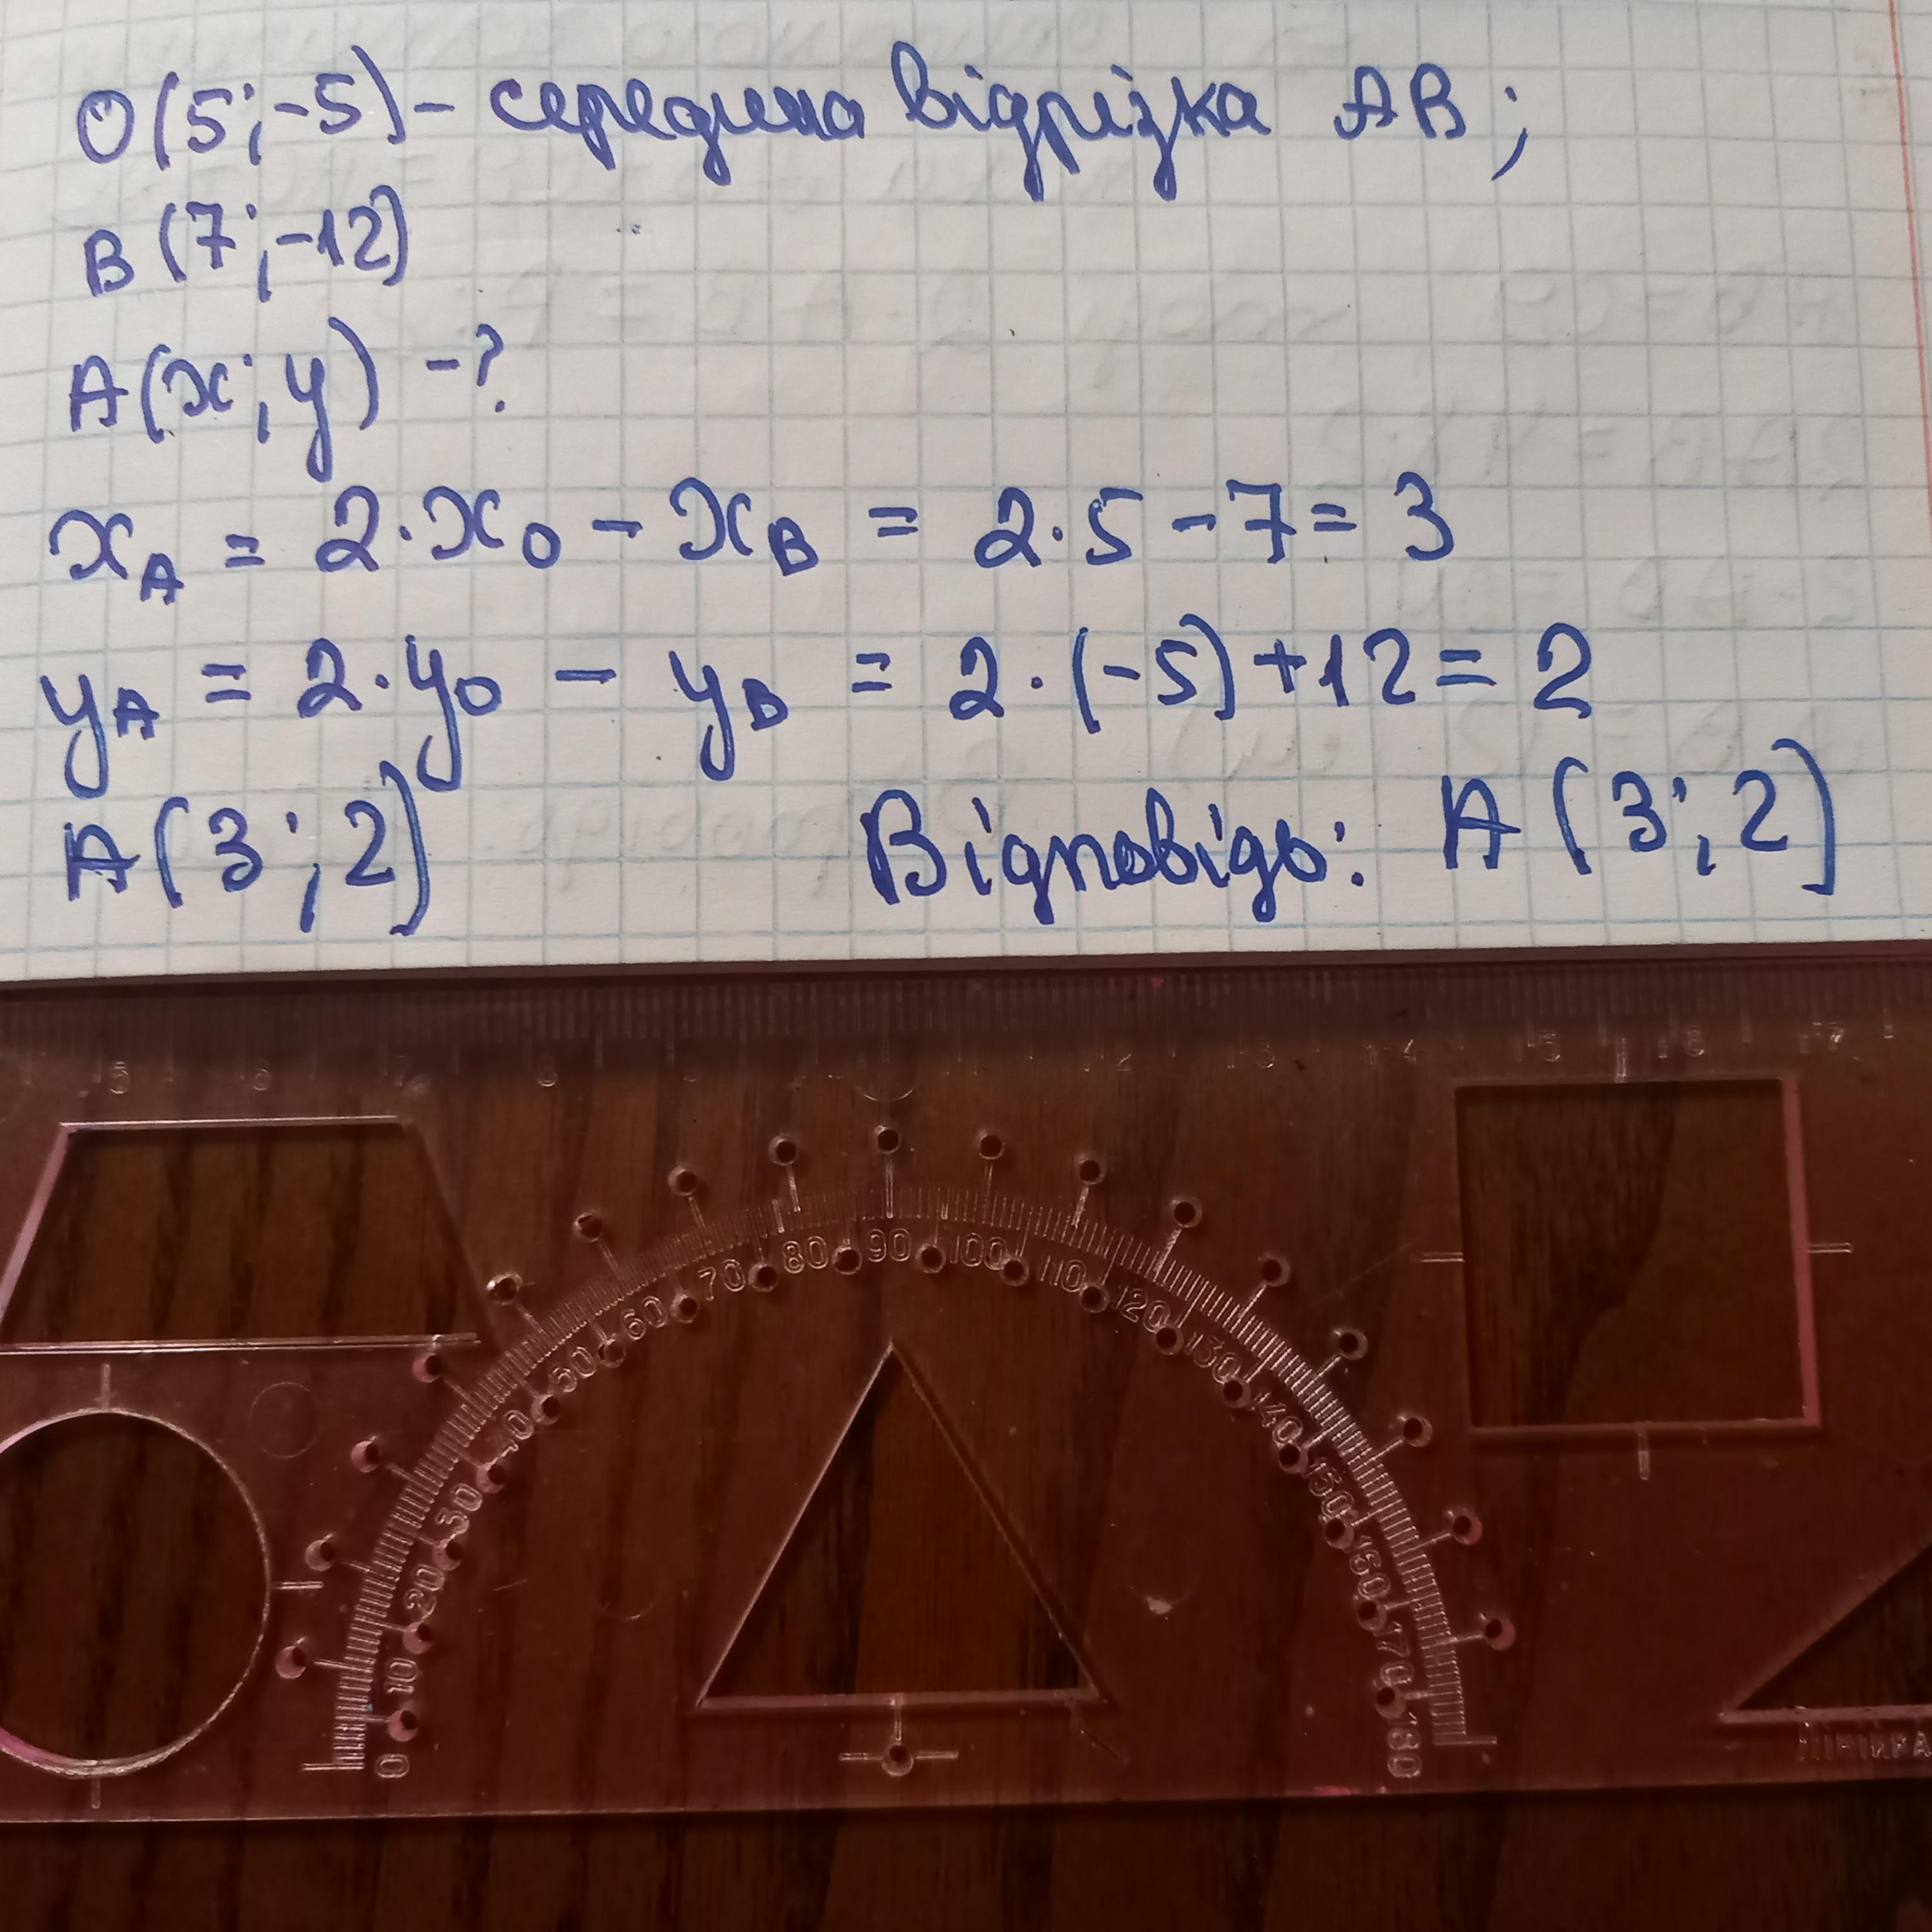 O(5;-5) - середина відрізка AB;
B(7;-12)
A(x;y) -?
xA = 2·xO - xB = 2·5-7=3
yA = 2·yO - yB = 2·(-5)+12=2
A(3;2) Відповідь: A(3;2)
5 6 7 8 12 13 14 15 16 17
0 10 20 30 40 50 60 70 80 90 100 110 120 130 140 150 160 170 180